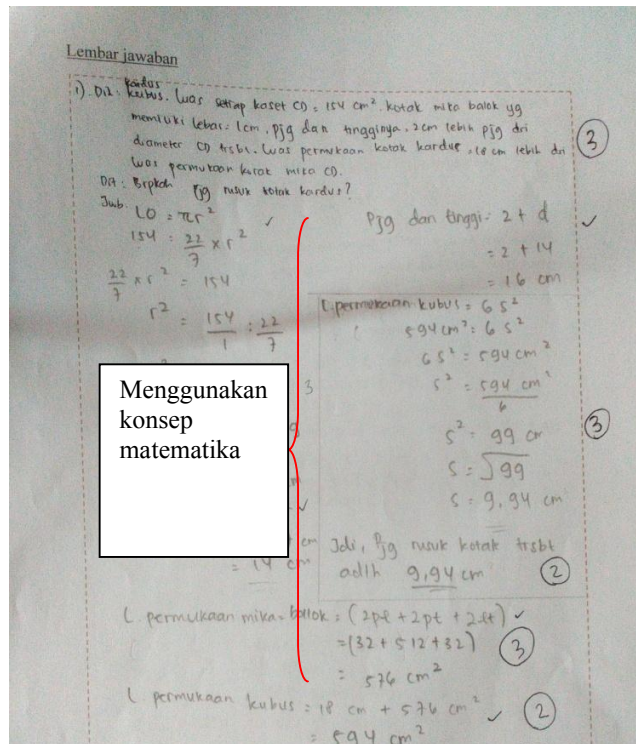 Lembar jawaban
1). Dik: kardus kubus. Luas setiap kaset CD = 154 cm². kotak mika balok yg
memiliki lebar: 1cm, pjg dan tingginya. 2cm lebih pjg dri
diameter CD trsbt. Luas permukaan kotak kardus, 18 cm lebih dri
luas permukaan kotak mika CD.
3
Dit: Brpkah pjg rusuk kotak kardus?
Jwb.
LO = πr² ✓
154 = 22/7 × r²
22/7 × r² = 154
r² = 154/1 : 22/7
3
cm
= 14 cm
Menggunakan
konsep
matematika
Pjg dan tinggi = 2 + d ✓
= 2 + 14
= 16 cm
L. permukaan kubus = 6 s²
594 cm² = 6 s²
6 s² = 594 cm²
s² = 594 cm²/6
s² = 99 cm
s = √99
s = 9,94 cm
3
Jdi, Pjg rusuk kotak trsbt
adlh 9,94 cm
2
L. permukaan mika = ballok = (2pl + 2pt + 2lt) ✓
= (32 + 512 + 32)
3
= 576 cm²
L permukaan kubus = 18 cm + 576 cm² ✓
2
= 594 cm²